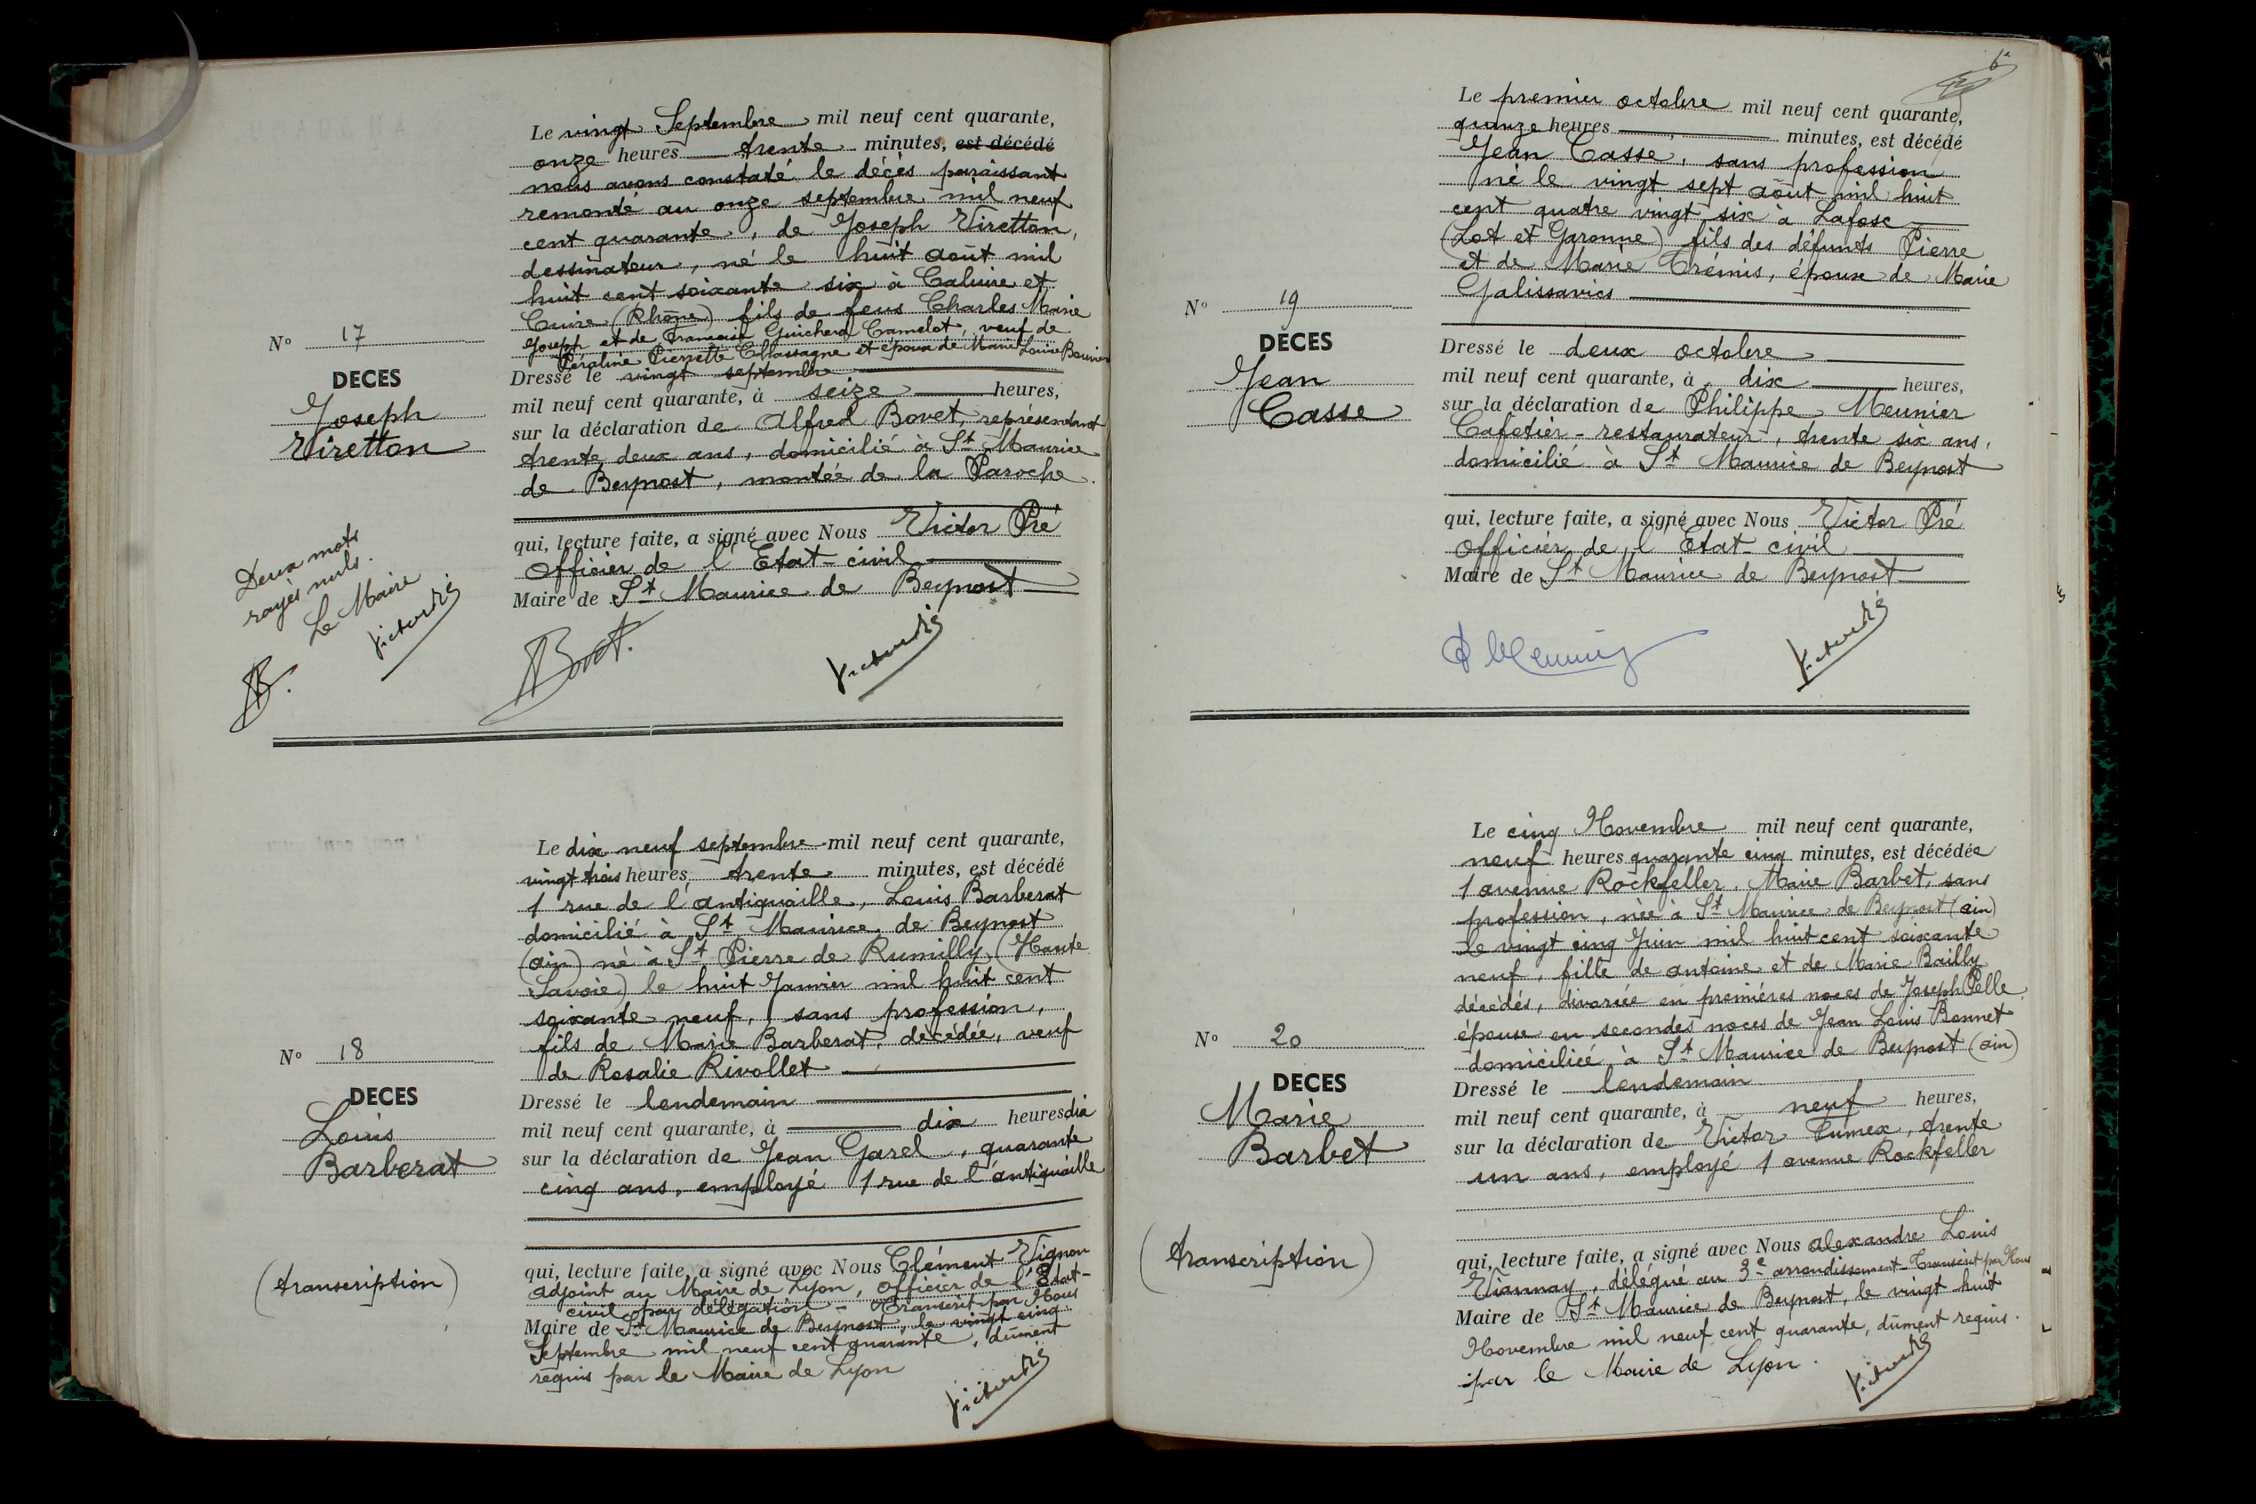 Le vingt Septembre mil neuf cent quarante,
onze heures trente minutes, est décédé
nous avons constaté le décès paraissant
remonté au onze septembre mil neuf
cent quarante, de Joseph Viretton,
dessinateur, né le huit août mil
huit cent soixante six à Caluire et
Cuire (Rhône) fils de feus Charles Marie
Joseph et de Francoise Guicherd Camelot, veuf de
Pierrette Chassagne et époux de Marie Louise
N° 17
DECES
Joseph
Viretton
Dressé le vingt septembre
mil neuf cent quarante, à seize heures,
sur la déclaration de Alfred Bovet, représentant
trente deux ans, domicilié à St Maurice
de Beynost, montée de la Paroche.
qui, lecture faite, a signé avec Nous Victor Pré
Officier de l'Etat-civil
Maire de St Maurice de Beynost
Deux mots
rayés nuls.
Le Maire
Victor Pré
AB.
ABovet.
Victor Pré
Le dix neuf septembre mil neuf cent quarante,
vingt trois heures, trente minutes, est décédé
1 rue de l'antiquaille, Louis Barberat
domicilié à St Maurice de Beynost
(ain) né à St Pierre de Rumilly (Haute
Savoie) le huit Janvier mil huit cent
soixante neuf, sans profession,
fils de Marie Barberat, décédée, veuf
de Rosalie Rivollet
N° 18
DECES
Louis
Barberat
(transcription)
Dressé le lendemain
mil neuf cent quarante, à dix heures dix
sur la déclaration de Jean Garel, quarante
cinq ans, employé 1 rue de l'antiquaille
qui, lecture faite, a signé avec Nous Clément Vignon
adjoint au Maire de Lyon, officier de l'Etat-
civil par délégation - Transcrit par Nous
Maire de St Maurice de Beynost, le vingt cinq
Septembre mil neuf cent quarante, dûment
requis par le Maire de Lyon
Victor Pré
Le premier octobre mil neuf cent quarante,
quinze heures minutes, est décédé
Jean Casse, sans profession
né le vingt sept août mil huit
cent quatre vingt six à Lafosc
(Lot et Garonne) fils des défunts Pierre
et de Marie Crémis, époux de Marie
Galissaries
N° 19
DECES
Jean
Casse
Dressé le deux octobre
mil neuf cent quarante, à dix heures,
sur la déclaration de Philippe Meunier
Cafetier-restaurateur, trente six ans,
domicilié à St Maurice de Beynost
qui, lecture faite, a signé avec Nous Victor Pré
Officier de l'Etat-civil
Maire de St Maurice de Beynost
P Meunier
Victor Pré
Le cinq Novembre mil neuf cent quarante,
neuf heures quarante cinq minutes, est décédée
1 avenue Rockfeller, Marie Barbet, sans
profession, née à St Maurice de Beynost (ain)
le vingt cinq Juin mil huit cent soixante
neuf, fille de antoine et de Marie Bailly
décédés, divorcée en premières noces de Joseph Pelle
épouse en secondes noces de Jean Louis Bonnet
domiciliée à St Maurice de Beynost (ain)
N° 20
DECES
Marie
Barbet
(transcription)
Dressé le lendemain
mil neuf cent quarante, à neuf heures,
sur la déclaration de Victor Tumex, trente
un ans, employé 1 avenue Rockfeller
qui, lecture faite, a signé avec Nous alexandre Louis
Viannay, délégué au 3e arrondissement - Transcrit par Nous
Maire de St Maurice de Beynost, le vingt huit
Novembre mil neuf cent quarante, dûment requis.
par le Maire de Lyon.
Victor Pré